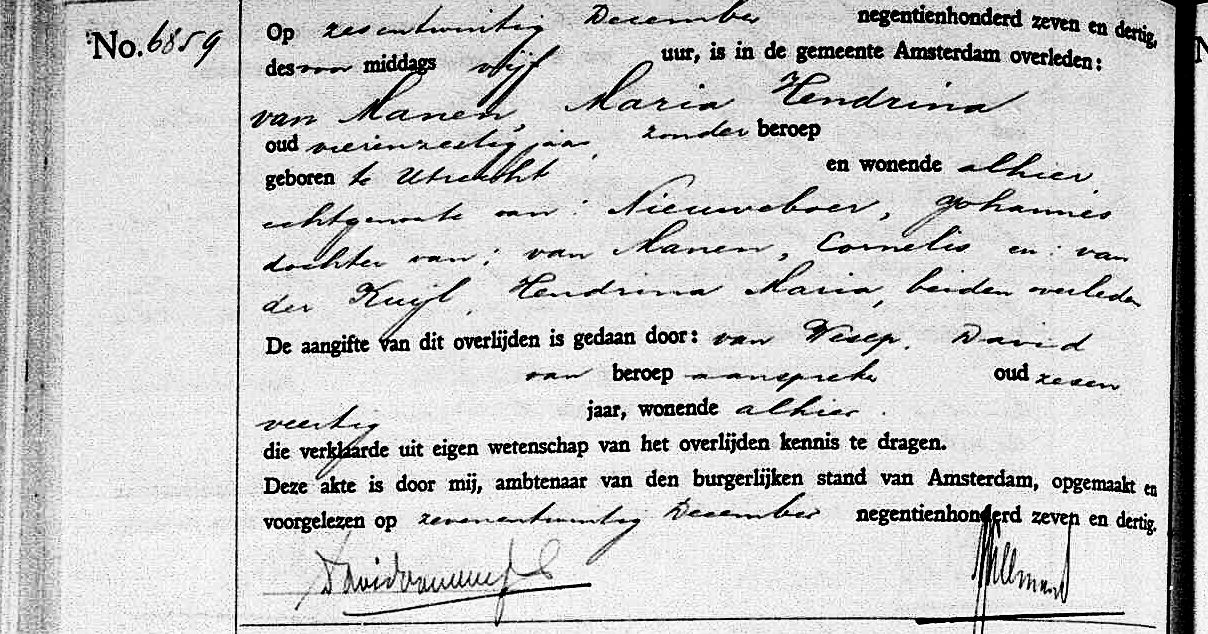 No. 6859
Op zesentwintig December negentienhonderd zeven en dertig,
des voor middags vijf uur, is in de gemeente Amsterdam overleden:
van Manen, Maria Hendrina
oud vierenzestig jaar, zonder beroep
geboren te Utrecht en wonende alhier,
echtgenoote van: Nieuweboer, Johannes
dochter van: van Manen, Cornelis en: van
der Kuijl, Hendrina Maria, beiden overleden
De aangifte van dit overlijden is gedaan door: van Wesep, David
van beroep aanspreker oud zesen
veertig jaar, wonende alhier.
die verklaarde uit eigen wetenschap van het overlijden kennis te dragen.
Deze akte is door mij, ambtenaar van den burgerlijken stand van Amsterdam, opgemaakt en
voorgelezen op zevenentwintig December negentienhonderd zeven en dertig.